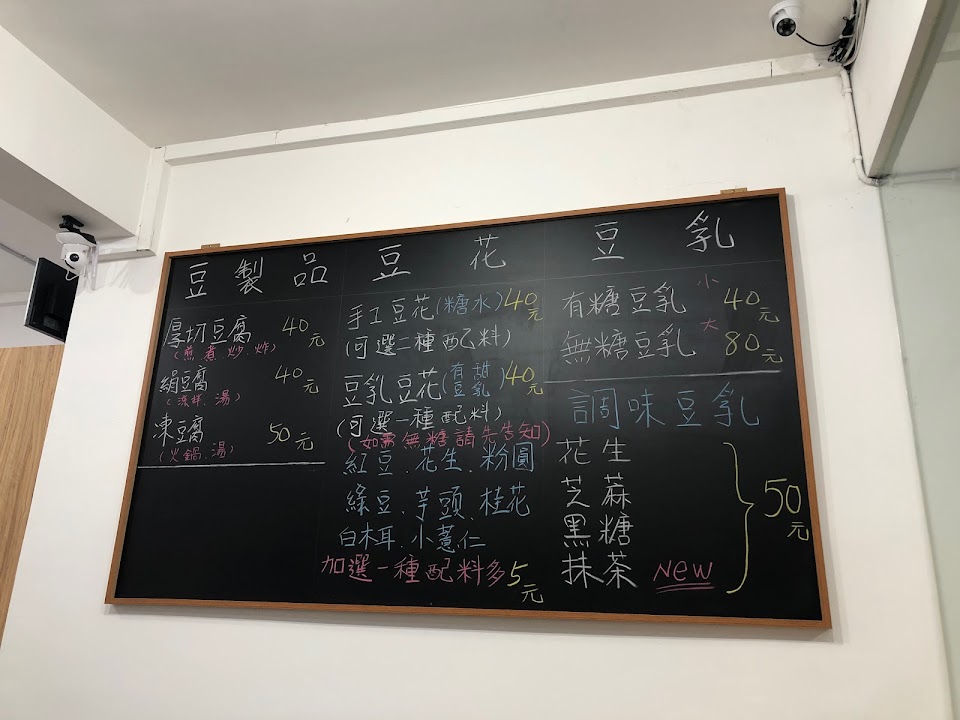 豆製品
厚切豆腐 40元
(煎.煮.炒.炸)
絹豆腐 40元
(涼拌.湯)
凍豆腐 50元
(火鍋.湯)
豆花
手工豆花(糖水)40元
(可選二種配料)
豆乳豆花(有甜豆乳)40元
(可選一種配料)
(如需無糖請先告知)
紅豆.花生.粉圓
綠豆.芋頭.桂花
白木耳.小薏仁
加選一種配料多5元
豆乳
有糖豆乳 小 40元
無糖豆乳 大 80元
調味豆乳
花生
芝蔴
黑糖
抹茶 NEW
50元